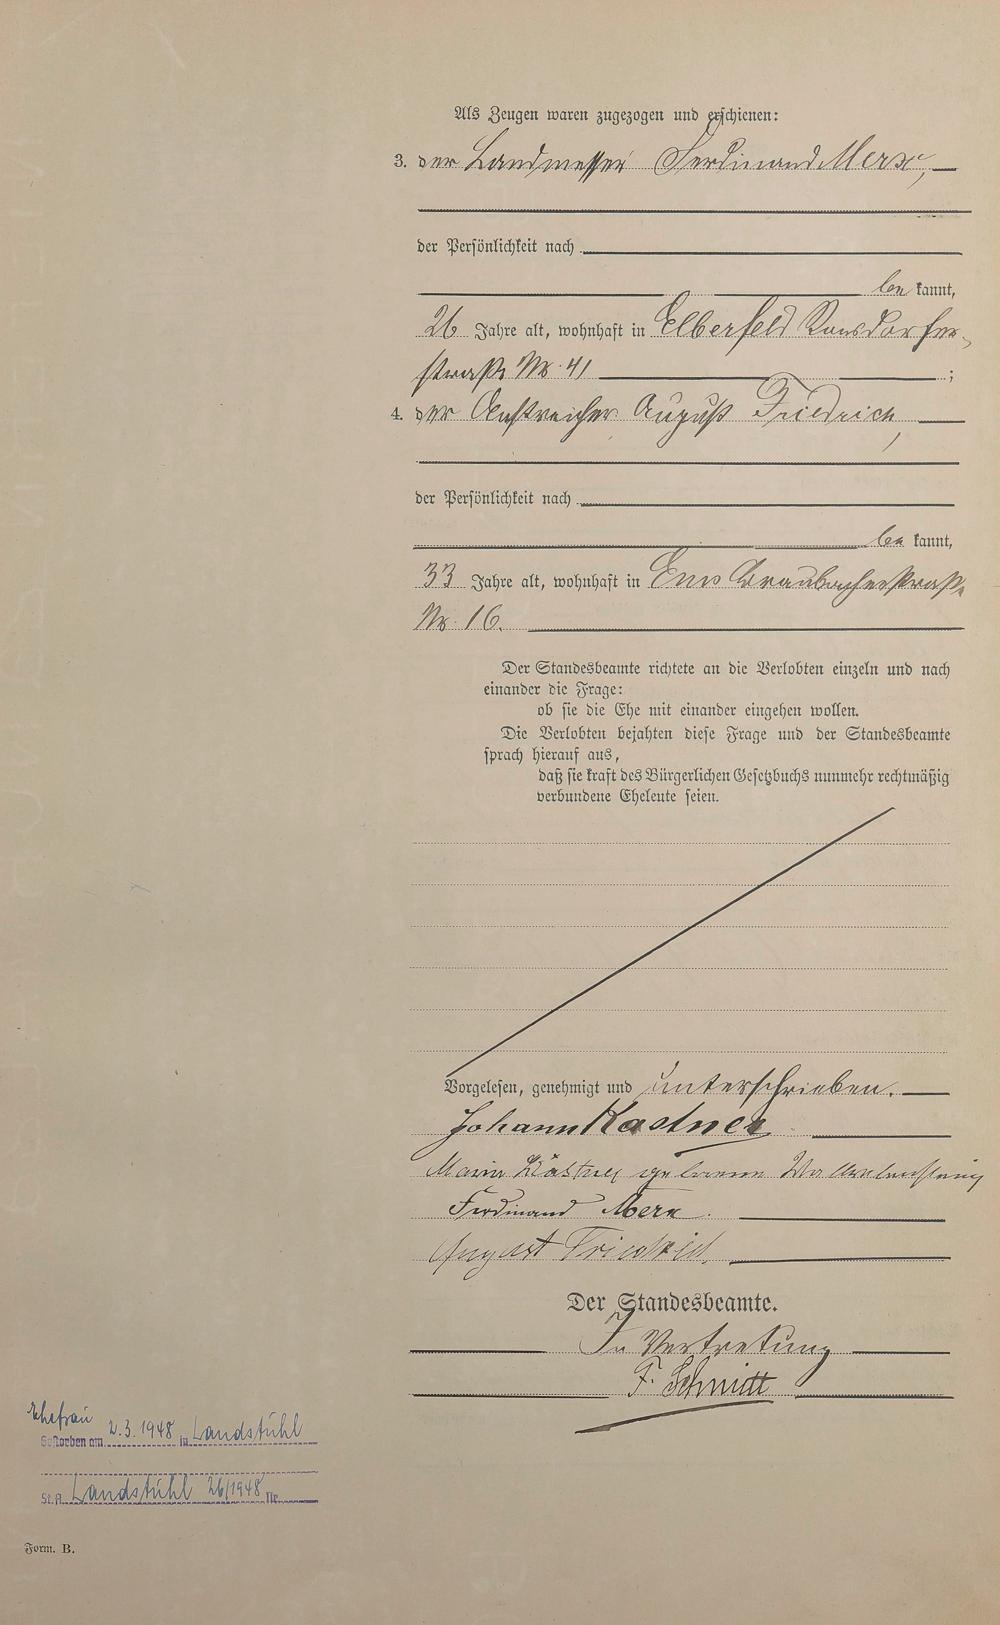 Als Zeugen waren zugezogen und erschienen:
3. der Landmesser Ferdinand Merx,
der Persönlichkeit nach
be kannt,
26 Jahre alt, wohnhaft in Elberfeld Ronsdorfer-
straße Nr. 41 ;
4. der Anstreicher August Friedrich,
der Persönlichkeit nach
be kannt,
33 Jahre alt, wohnhaft in Ems Braubacherstraße
Nr. 16.
Der Standesbeamte richtete an die Verlobten einzeln und nach
einander die Frage:
ob sie die Ehe mit einander eingehen wollen.
Die Verlobten bejahten diese Frage und der Standesbeamte
sprach hierauf aus,
daß sie kraft des Bürgerlichen Gesetzbuchs nunmehr rechtmäßig
verbundene Eheleute seien.
Vorgelesen, genehmigt und unterschrieben.
Johann Kastner
Maria Kästner geborene
Ferdinand Merx.
August Friedrich.
Der Standesbeamte.
In Vertretung
F. Schmitt
Ehefrau
Gestorben am 2.3.1948 in Landstühl
St.A. Landstühl 26/1948 Nr.
Form. B.